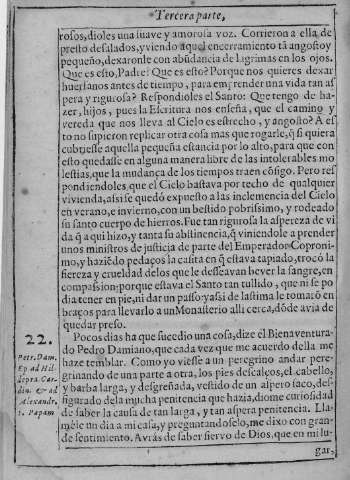 Tercera parte,
rosos, dioles una suave y amorosa voz. Corrieron a ella de
presto desalados, y viendo aquel encerramiento tā angosto y
pequeño, dexaronle con abūdancia de lagrimas en los ojos.
Que es esto, Padre? Que es esto? Porque nos quieres dexar
huerfanos antes de tiempo, para emprender una vida tan as
pera y rigurosa? Respondioles el Santo. Que tengo de ha-
zer, hijos, pues la Escritura nos enseña, que el camino y
vereda que nos lleva al Cielo es estrecho, y angosto? A es
to no supieron replicar otra cosa mas que rogarle, q̄ si quiera
cubriesse aquella pequeña estancia por lo alto, para que con
esto quedasse en alguna manera libre de las intolerables mo
lestias, que la mudança de los tiempos traen cōsigo. Pero res
pondiendoles, que el Cielo bastava por techo de qualquier
vivienda, assi se quedó expuesto a las inclemencias del Cielo
en verano, e invierno, con un bestido pobrissimo, y rodeado
su santo cuerpo de hierros. Fue tan rigurosa la aspereza de vi
da q̄ aqui hizo, y tanta su abstinencia, q̄ viniendole a prender
unos ministros de justicia de parte del Emperador Coproni-
mo, y haziēdo pedaços la casita en q̄ estava tapiado, trocó la
fiereza y crueldad de los que le desseavan bever la sangre, en
compassion: porque estava el Santo tan tullido, que ni se po
dia tener en pie, ni dar un passo: y assi de lastima le tomarō en
braços para llevarlo a un Monasterio alli cerca, dōde avia de
quedar preso.
22.
Petr. Dam.
Ep ad Hil
depra. Car
din. & ad
Alexandr.
2. Papam
Pocos dias ha que sucedio una cosa, dize el Bienaventura-
do Pedro Damiano, que cada vez que me acuerdo della me
haze temblar. Como yo viesse a un peregrino andar pere-
grinando de una parte a otra, los pies descalços, el cabello,
y barba larga, y desgreñada, vestido de un aspero saco, des-
figurado de la mucha penitencia que hazia, diome curiosidad
de saber la causa de tan larga, y tan aspera penitencia. Lla-
mēle un dia a mi casa, y preguntandoselo, me dixo con gran-
de sentimiento. Avrás de saber siervo de Dios, que en mi lu-
gar,